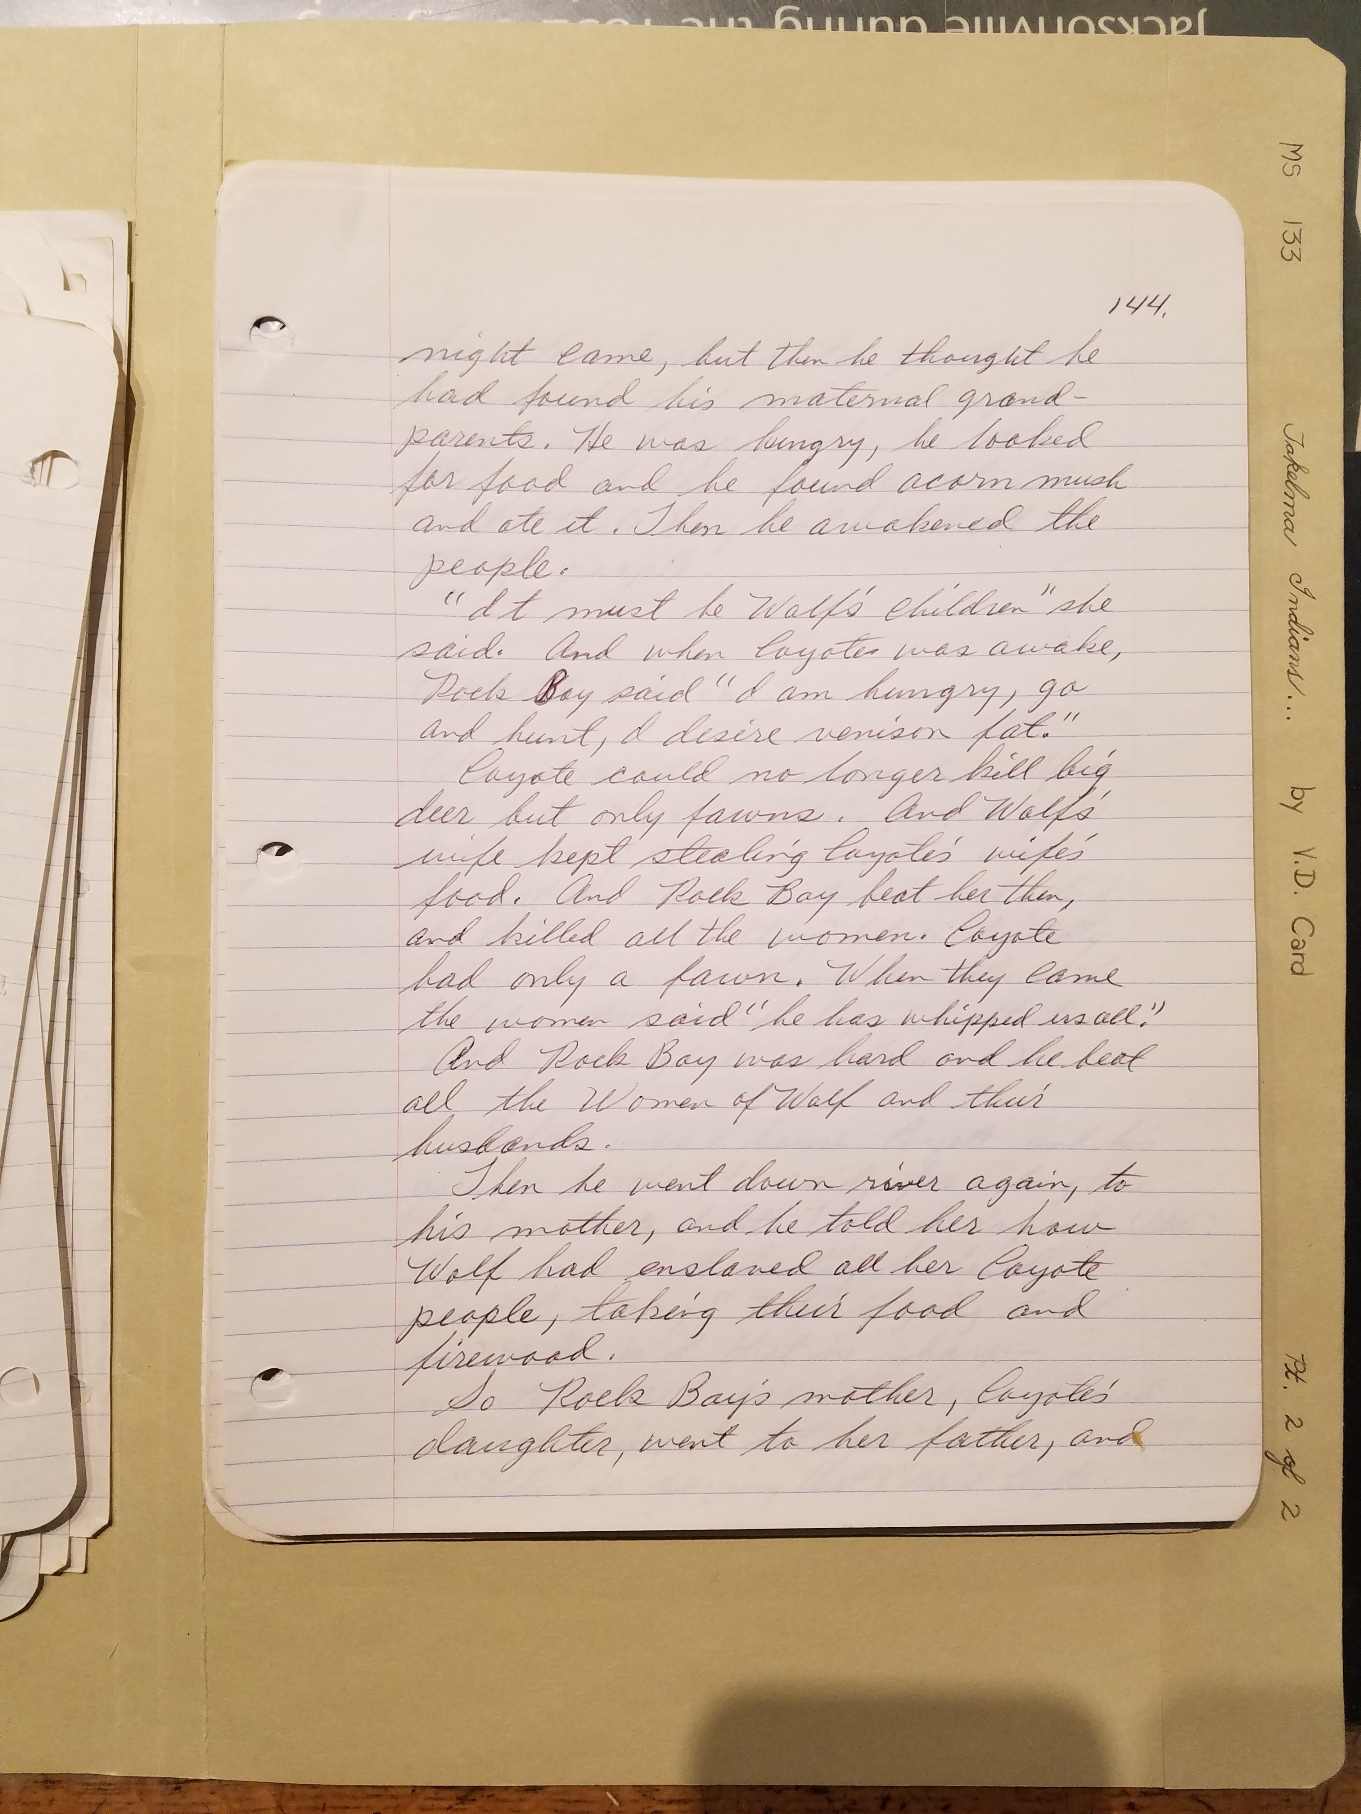 Jacksonville during the
144.
night came, but then he thought he
had found his maternal grand-
parents. He was hungry, he looked
for food and he found acorn mush
and ate it. Then he awakened the
people.
"It must be Wolf's children" she
said. And when Coyote was awake,
Rock Boy said "I am hungry, go
and hunt, I desire venison fat."
Coyote could no longer kill big
deer but only fawns. And Wolf's
wife kept stealing Coyote's wife's
food. And Rock Boy beat her then,
and killed all the women. Coyote
had only a fawn. When they came
the women said "he has whipped us all."
And Rock Boy was hard and he beat
all the Women of Wolf and their
husbands.
Then he went down river again, to
his mother, and he told her how
Wolf had enslaved all her Coyote
people, taking their food and
firewood.
So Rock Boy's mother, Coyote's
daughter, went to her father, and
MS 133 Takelma Indians... by V.D. Card Pt. 2 of 2